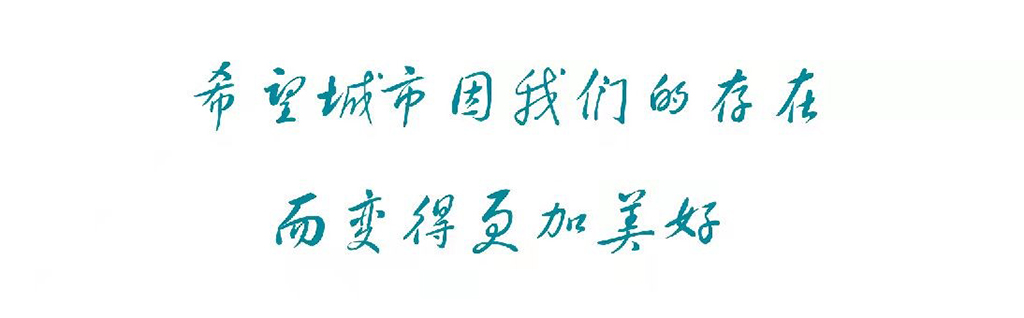 希望城市因我们的存在
而变得更加美好